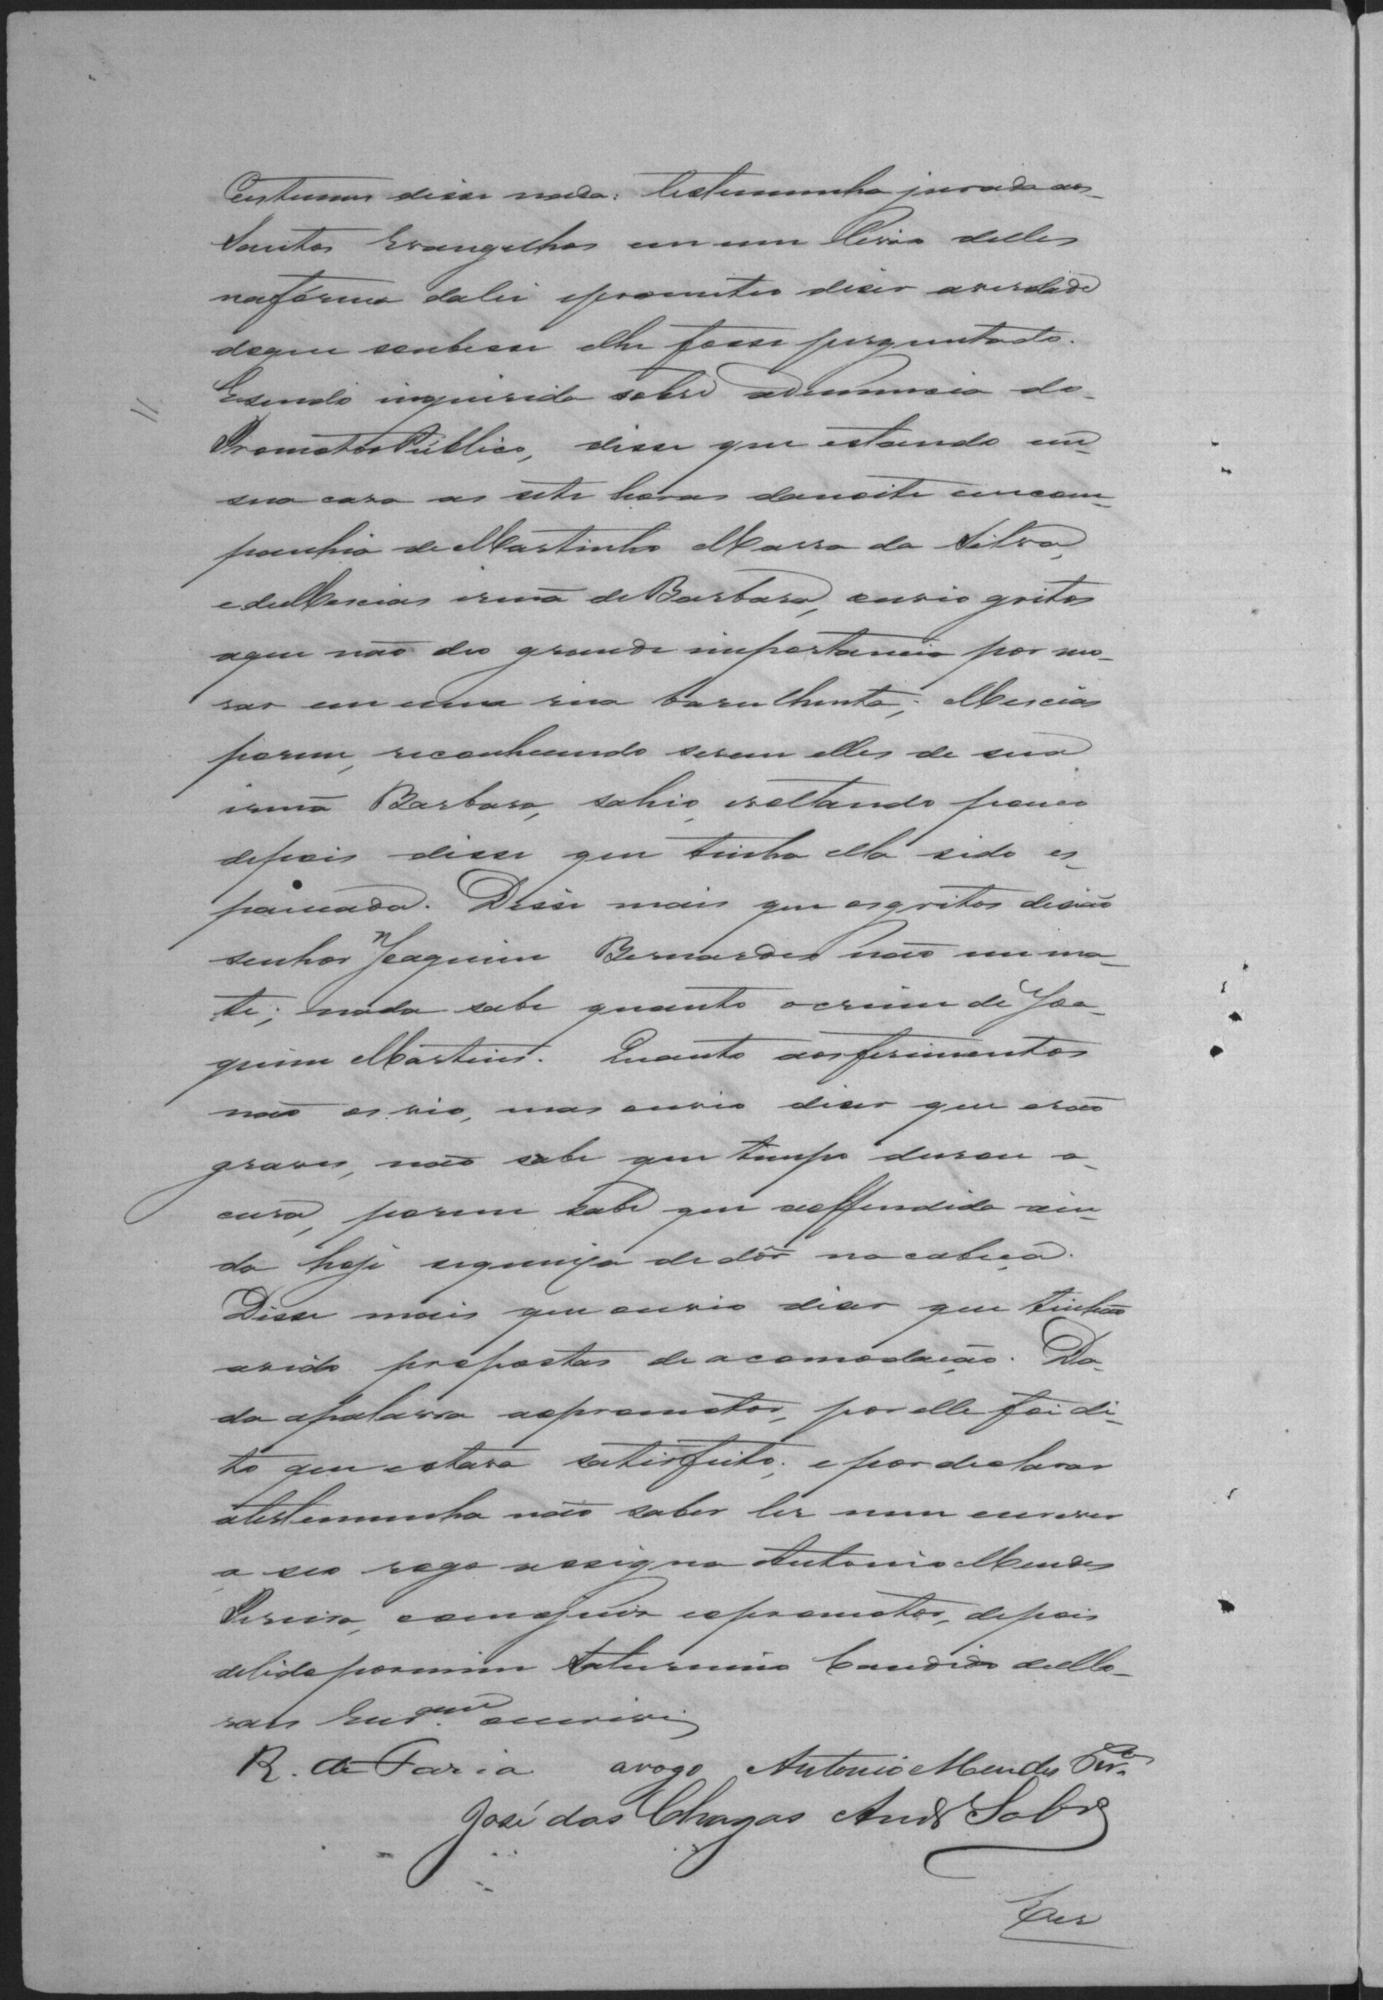 Custumes disse nada: testemunha jurada aos
Santos Evangelhos em um livro delles
nafórma dalei eprometeo diser averdade
doque soubesse elhe fosse perguntado.
Esendo inquirida sobre adenuncia do
Promotor Público, disse que estando em
sua casa as sete horas danoite emcom-
panhia de Martinho Marra da Silva,
ede Mecias irmã de Barbara, ouvio gritos
aque não deo grande importancia por mo-
rar em uma rua barulhenta; Mecias
porem, reconhecendo serem elles de sua
irmã Barbara, sahio, evoltando pouco
depois disse que tinha ella sido es-
pancada. Disse mais que osgritos disião
senhor Joaquim Bernardes não mi ma-
te; nada sabe quanto ocrime de Joa-
quim Martins. Quanto aosferimentos
não os vio, mas ouvio diser que erão
graves, não sabe que tempo durou a
cura, porem sabe que aoffendida ain-
da hoje sequeixa de dôr na cabeça.
Disse mais que ouvio diser que tinhão
avido propostas de acomodação. Da-
da apalavra aopromotor, por elle foi di-
to que estava satisfeito; e por declarar
atestemunha não saber ler nem escrever
a seo rogo assigna Antonio Mendes
Pereira, comojuis eopromotor, depois
delido pormim Saturnino Candido de Mo-
raes Escr.am oescrivi
R. de Faria arogo Antonio Mendes Per.a
José das Chagas And.e Sobr.o